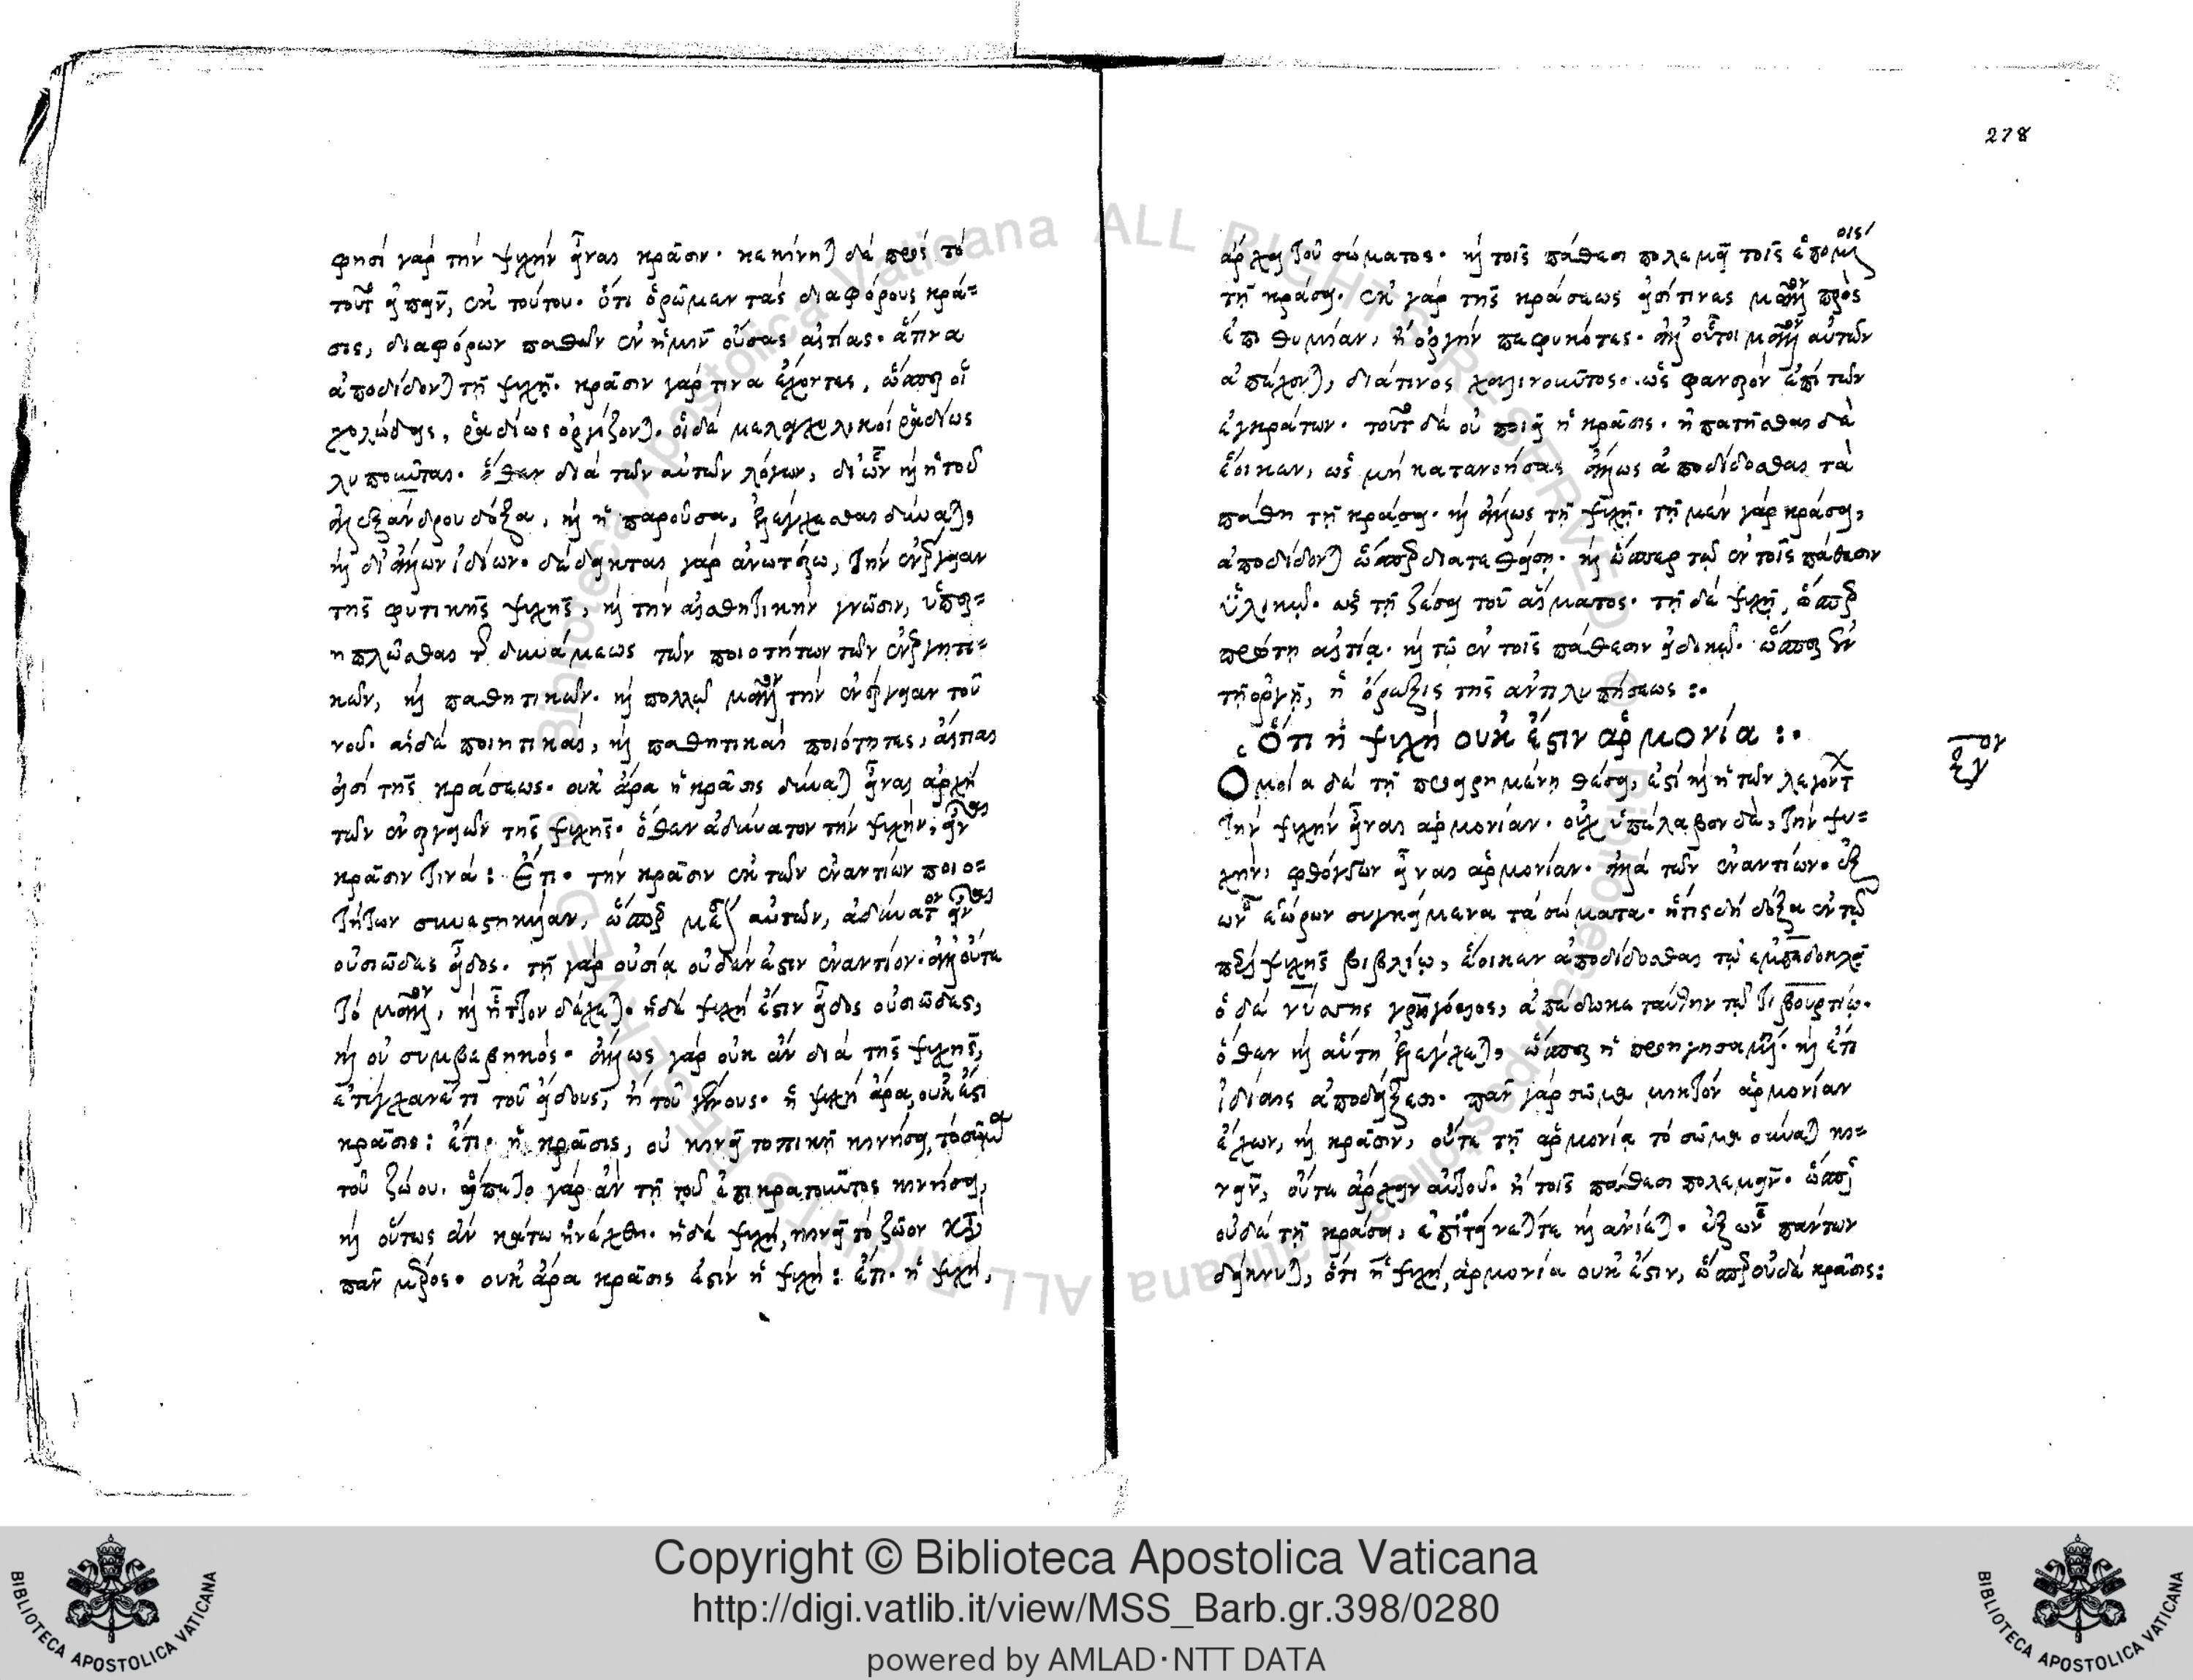 φησί γὰρ τὴν ψυχὴν εἶναι κρᾶσιν. κεκίνηται δὲ πρὸς τὸ
τοῦτο εἰπεῖν, ἐκ τούτου. ὅτι ὁρῶμεν τὰς διαφόρους κρά-
σεις, διαφόρων παθῶν ἐν ἡμῖν οὔσας αἰτίας. ἅτινα
ἀποδίδονται τῇ ψυχῇ. κρᾶσιν γάρ τινα ἔχοντες, ὥσπερ οἱ
χολώδεις, ῥαδίως ὀργίζονται. οἱ δὲ μελαγχολικοὶ ῥαδίως
λυποῦνται. ὅθεν διὰ τῶν αὐτῶν λόγων, δι' ὧν καὶ ἡ τοῦ
ἀλεξάνδρου δόξα, καὶ ἡ παροῦσα, ἐξελέγχεσθαι δύναται,
καὶ δι' ἄλλων ἰδίων. δέδεικται γὰρ ἀνωτέρω, τὴν ἐνέργειαν
τῆς φυτικῆς ψυχῆς, καὶ τὴν αἰσθητικὴν γνῶσιν, ὑπερ-
δυνάμεως τῶν ποιοτήτων τῶν ἐνεργητι-
κῶν, καὶ παθητικῶν. καὶ πολλῷ μᾶλλον τὴν ἐνέργειαν τοῦ
νοῦ. αἱ δὲ ποιητικαὶ, καὶ παθητικαὶ ποιότητες, αἰτίαι
εἰσὶ τῆς κράσεως. οὐκ ἄρα ἡ κρᾶσις δύναται εἶναι ἀρχὴ
τῶν ἐνεργειῶν τῆς ψυχῆς. ὅθεν ἀδύνατον τὴν ψυχὴν, εἶναι
κρᾶσιν τινά: Ἔτι. τὴν κρᾶσιν ἐκ τῶν ἐναντίων ποιο-
τήτων συνεστηκυῖαν, ὥσπερ μέσην αὐτῶν, ἀδύνατον εἶναι
οὐσιῶδες εἶδος. τῇ γὰρ οὐσίᾳ οὐδέν ἐστιν ἐναντίον. ἀλλ' οὔτε
τὸ μᾶλλον, καὶ ἧττον δέχεται. ἡ δὲ ψυχή ἐστιν εἶδος οὐσιῶδες,
καὶ οὐ συμβεβηκός. ἄλλως γὰρ οὐκ ἂν διὰ τῆς ψυχῆς,
ἐτύγχανέ τι τοῦ εἴδους, ἢ τοῦ γένους. ἡ ψυχὴ ἄρα, οὐκ ἔστι
κρᾶσις: ἔτι. ἡ κρᾶσις, οὐ κινεῖ τοπικῇ κινήσει, τὸ σῶμα
τοῦ ζώου. εἵπετο γὰρ ἂν τῇ τοῦ ἐπικρατοῦντος κινήσει,
καὶ οὕτως ἂν κάτω ἠνέχθη. ἡ δὲ ψυχὴ, κινεῖ τὸ ζῶον κατὰ
πᾶν μέρος. οὐκ ἄρα κρᾶσις ἐστὶν ἡ ψυχή: ἔτι. ἡ ψυχὴ,
278
ἄρχει τοῦ σώματος. καὶ τοῖς πάθεσι πολεμεῖ τοῖς ἑπομένοις
τῇ κράσει. ἐκ γὰρ τῆς κράσεως εἰσί τινες μᾶλλον πρὸς
ἐπιθυμίαν, ἢ ὀργὴν πεφυκότες. ἀλλ' οὗτοι μᾶλλον αὐτῶν
ἀπέχονται, διά τινος χαλινοῦντος. ὡς φανερὸν ἐπὶ τῶν
ἐγκρατῶν. τοῦτο δὲ οὐ ποιεῖ ἡ κρᾶσις. ἠπατῆσθαι δὲ
ἔοικεν, ὡς μὴ κατανοήσας ἄλλως ἀποδίδοσθαι τὰ
πάθη τῇ κράσει. καὶ ἄλλως τῇ ψυχῇ. τῇ μὲν γὰρ κράσει,
ἀποδίδονται ὥσπερ διατεθείσῃ. καὶ ὥσπερ τῷ ἐν τοῖς πάθεσιν
ὑλικῷ. ὡς τῇ ζέσει τοῦ αἵματος. τῇ δὲ ψυχῇ, ὥσπερ
πρώτῃ αἰτίᾳ. καὶ τῷ ἐν τοῖς πάθεσιν εἰδικῷ. ὥσπερ ἐν
τῇ ὀργῇ, ἡ ὄρεξις τῆς ἀντιλυπήσεως :.
Ὅτι ἡ ψυχὴ οὐκ ἔστιν ἁρμονία :.
ξγον
Ὁμοία δὲ τῇ προειρημένῃ θέσει, ἐστὶ καὶ ἡ τῶν λεγόντων
τὴν ψυχὴν εἶναι ἁρμονίαν. οὐχ ὑπέλαβον δὲ, τὴν ψυ-
χὴν, φθόγγων εἶναι ἁρμονίαν. ἀλλὰ τῶν ἐναντίων. ἐξ
ὧν ἑώρων συγκείμενα τὰ σώματα. ἥτις δὴ δόξα ἐν τῷ
περὶ ψυχῆς βιβλίῳ, ἔοικεν ἀποδίδοσθαι τῷ ἐμπεδοκλεῖ
ὁ δὲ νύσσης γρηγόριος, ἀπέδωκε ταύτην τῷ
ὅθεν καὶ αὕτη ἐξελέγχεται, ὥσπερ ἡ προηγησαμένη. καὶ ἔτι
ἰδίαις ἀποδείξεσι. πᾶν γὰρ σῶμα μικτὸν ἁρμονίαν
ἔχων, καὶ κρᾶσιν, οὔτε τῇ ἁρμονίᾳ τὸ σῶμα δύναται κι-
νεῖν, οὔτε ἄρχειν αὐτοῦ. ἢ τοῖς πάθεσι πολεμεῖν. ὥσπερ
οὐδὲ τῇ κράσει, ἐπιτείνεταί τε καὶ ἀνίεται. ἐξ ὧν πάντων
δείκνυται, ὅτι ἡ ψυχὴ, ἁρμονία οὐκ ἔστιν, ὥσπερ οὐδὲ κρᾶσις:
Copyright © Biblioteca Apostolica Vaticana
http://digi.vatlib.it/view/MSS_Barb.gr.398/0280
powered by AMLAD·NTT DATA
BIBLIOTECA APOSTOLICA VATICANA
BIBLIOTECA APOSTOLICA VATICANA
Biblioteca Apostolica Vaticana ALL RIGHTS RESERVED
© Biblioteca Apostolica Vaticana ALL RIGHTS RESERVED